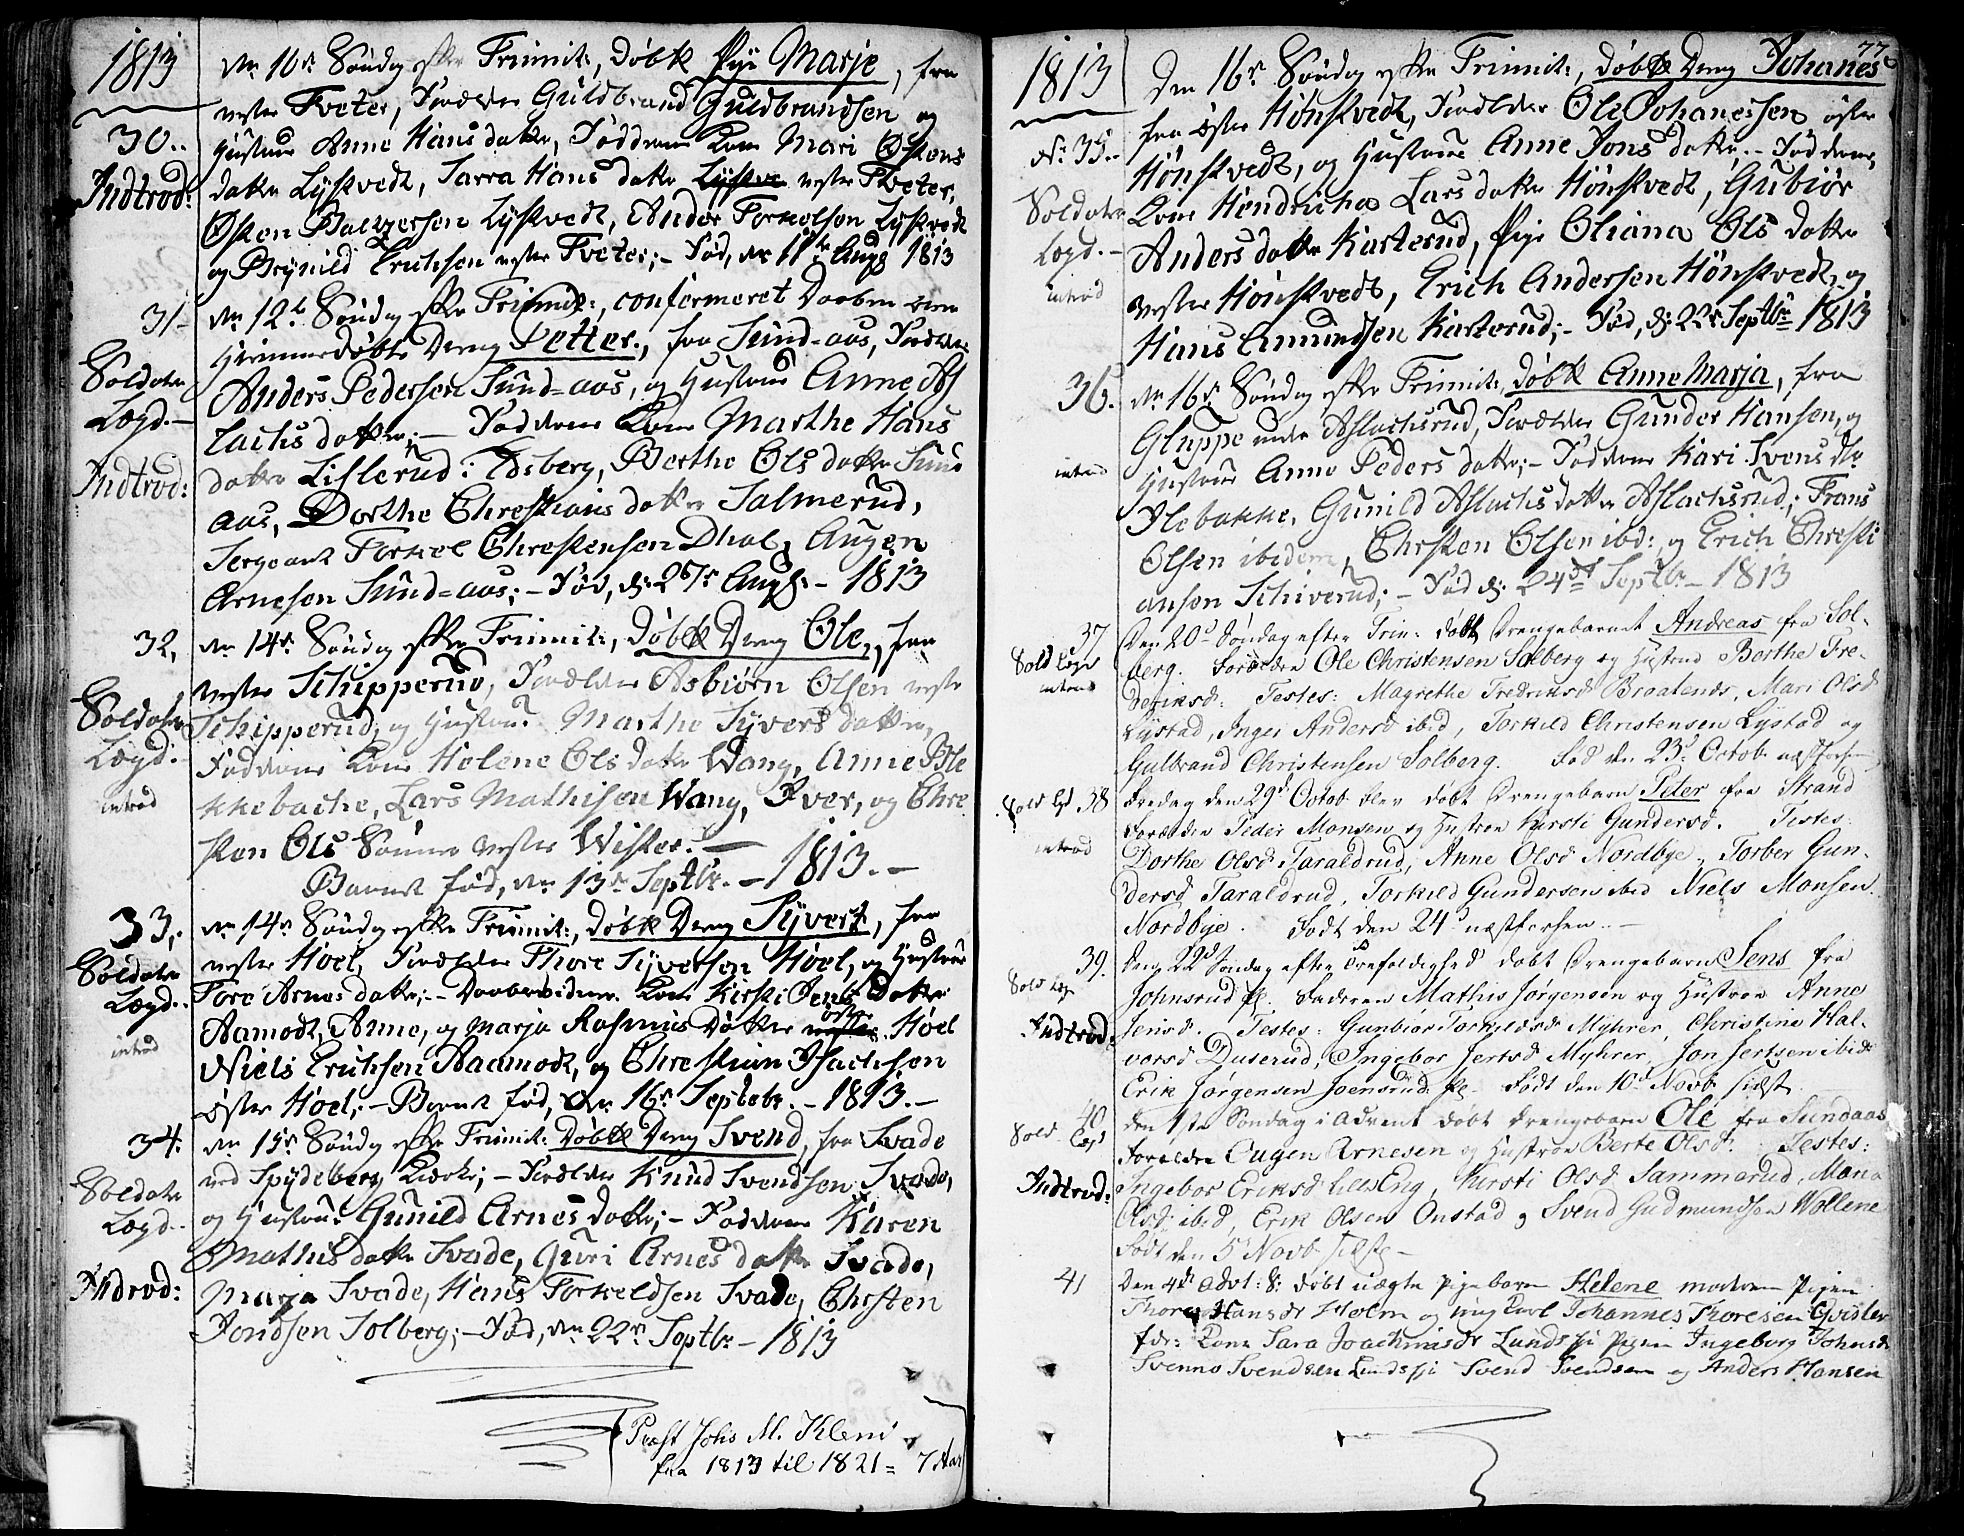 1813
dn 16de Søndag efter Trinit:, døbt Pige Marje, fra
30..
vester Tveter, Forældre Guldbrand Guldbrandsen og
Hustrue Anne Hans datter, Faddere Kone Mari Østens
Indtrod:
datter Lyskvedt, Sarra Hans datter vester Tveter,
Østen Balzersen Lyskvedt, Anders Torkelsen Lyskvedt
og Brynild Erichsen vester Tveter; - Fød, dn 11te Aug 1813
31-
dn 12te Søndag efter Trinit:, confermeret Daaben over
hiemmedøbte Dreng Petter, fra Sund-aas, Forældre
Soldater
Lægd.-
Anders Pedersen Sund-aas, og Hustrue Anne As
lachs datter; - Faddere Kone Marthe Hans
Indtrod:
datter Lislerud: Edsberg, Berthe Ols datter Sund
aas, Dorthe Chrestians datter Salmerud,
Sergeant Torkel Chrestensen Dhal, Augen
Arnesen Sund-aas; - Fød, d: 26de Augs: - 1813
32,
dn 14de Søndag efter Trinit:, Døbt Dreng Ole, fra
vester Schipperud, Forældre Asbiørn Olsen vester
Soldater
Lægd:
Schipperud, og Hustrue Marthe Syvers datter,
Faddere Kone Helene Ols datter Wang, Anne Ble
introd
kkebache, Lars Mathisen Wang, Iver, og Chre
sten Ols Sønner vester Wister. -
Barnet fød, dn 13de Septbr. - 1813. -
33,
dn 14de Søndag efter Trinit:, døbt Dreng Syvert, fra
vester Hoel, Forældre Thore Syversen Hoel, og Hustrue
Soldater
Lægd..
Tore Arnes datter; - Daabsvidner Kone Kirsti Jens Datter
Aamodt, Anne, og Marja Rasmus Døtter øster Hoel
introd
Niels Erichsen Aaamodt, og Chrestian Isachsen
øster Hoel; - Barnet fød, den 16de Septebr. - 1813. -
34.
dn 15de Søndag efter Trinit: Døbt Dreng Svend, fra Svade
Soldater
Lægd..
ved Spydeberg Kierke; - Forældre Knud Svendsen Svade,
og Hustrue Gunild Arnes datter; - Faddere Karen
Mathis datter Svade, Guri Arnes datter Svade,
Indrod:
Marja Svade, Hans Torkeldsen Svade, Chesten
Jondsen Solberg; - Fød, dn 22de Septbr - 1813
Præst Johs M. Klem
fra 1813 til 1821 = 7 Aar
77
1813
Den 16de Søndag efter Trinit:, døbt Dreng Johanes
fra øster Hønskvedt, Forældre Ole Johanessen øster
No 35..
Hønskvedt, og Hustrue Anne Jons datter, - Faddere,
Soldater
Lægd. -
Kone Hendricha Lars datter Hønskvedt, Gubiør
Anders datter Karterud, Pige Oliana Ols datter
introd
vester Hønskvedt, Erich Andersen Hønskvedt, og
Hans Amundsen Karterud; - Fød, d: 22de Septbr 1813
36.
dn 16de Søndag efter Trinit:, døbt Anne Marja, fra
Gluppe under Aslachsrud, Forældre Gunder Hansen, og
introd
Hustrue Anne Peders datter; - Faddere Kari Svens dtr
Ilebakke, Gunild Aslachs datter Aslachsrud; Frans
Olsen ibidem, Chrsten Olsen ibd:, og Erich Chresti
ansen Schiverud; - Fød d: 24de Septbr - 1813
37
Sold Lægd
introd
Den 20d Søndag efter Trin: døbt Drengebarnet Andreas fra Sol-
berg. Forældre Ole Christensen Solberg og Hustrue Berthe Fre-
deriksd: Testes: Magrethe Fredriksd Braatends, Mari Olsd
Lystad, Inger Andersd ibid, Torkild Christensen Lystad og
Gulbrand Christensen Solberg. Fød den 23d Octob. næstforhen
Sold Lgd 38
Fredag den 29d Octob blev døbt Drengebarn Peter fra Strand
introd
Forældre Peder Monsen og Hustrue Kirsti Gundersd. Testes:
Dorthe Olsd Taraldrud, Anne Olsd Nordbye, Torber Gun-
dersd Taraldrud, Torkild Gundersen ibid Niels Monsen
Nordbye. Født den 24d næstforhen. -
39.
Sold Læg
Den 22d Søndag efter Trefoldighed døbt Drengebarn Jens fra
Johnsrud pl. Faderen Mathis Jørgensen og Hustrue Anne
Indtrod:
Jensd. Testes: Gunbiør Torkildsd Myhrer, Christine Hal-
vorsd Duserud, Ingebor Jertsd Myhrer, Jon Jertsen ibid
Erik Jørgensen Joensrud pl. Født den 10d Novb. sidst
40
Sold Lægd
Den 1ste Søndag i Advent døbt Drengebarn Ole fra Sundaas
Forældre Augen Arnesen og Hustrue Berte Olsd. Testes:
Indtrod:
Ingebor Eriksd Eng, Kirsti Olsd Sammerud, Maria
Olsd ibid, Erik Olsen Onstad og Svend Gudmundsen Wollene
Født den 5 Novb sidste -
41
Den 4de Advt: S: døbt uægte Pigebarn Helene moderen Pigen
Thore Hansdr Holm og ung Karl Johannes Thoresen Gvisler
Fdr: Kone Sara Joachmsdr Lunds Pigen Ingeborg Johnsd
Svenno Svendsen Lunds Svend Svendsen og Anders Hansen